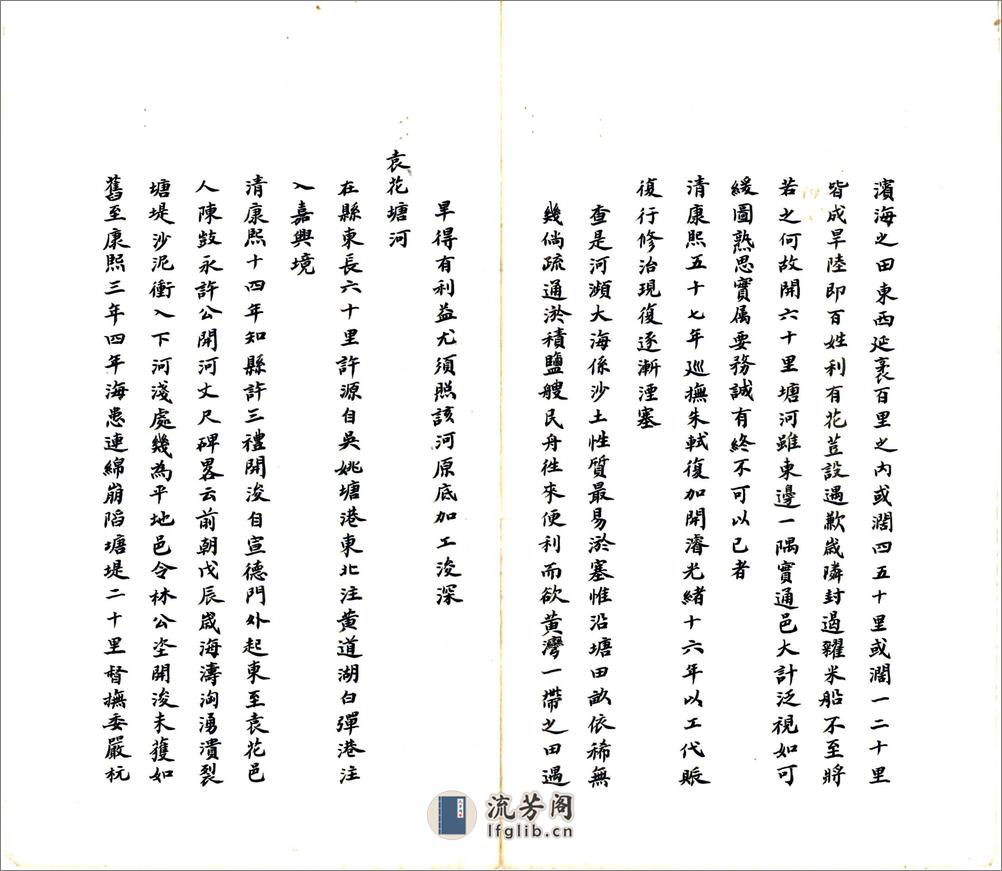 濱海之田東西延袤百里之內或濶四五十里或濶一二十里
皆成旱陸即百姓利有花荳設遇歉嵗隣封遏糴米船不至將
若之何故開六十里塘河雖東邊一隅實通邑大計泛視如可
緩圖熟思實属要務誠有終不可以已者
清康熙五十七年巡撫朱軾復加開濬光緒十六年以工代賑
復行修治現復逐漸湮塞
查是河瀕大海係沙土性質最易淤塞惟沿塘田畝依稀無
幾倘疏通淤積鹽艘民舟徃來便利而欲黄灣一帶之田遇
旱得有利益尤須照該河原底加工浚深
袁花塘河
在縣東長六十里許源自吳姚塘港東北注黄道湖白彈港注
入嘉興境
清康熙十四年知縣許三禮開浚自宣德門外起東至袁花邑
人陳敱永許公開河丈尺碑畧云前朝戊辰嵗海濤洶湧潰裂
塘堤沙泥衝入下河淺處幾為平地邑令林公坴開浚未獲如
舊至康熙三年四年海患連綿崩陷塘堤二十里督撫委嚴杬
流芳阁
lfglib.cn